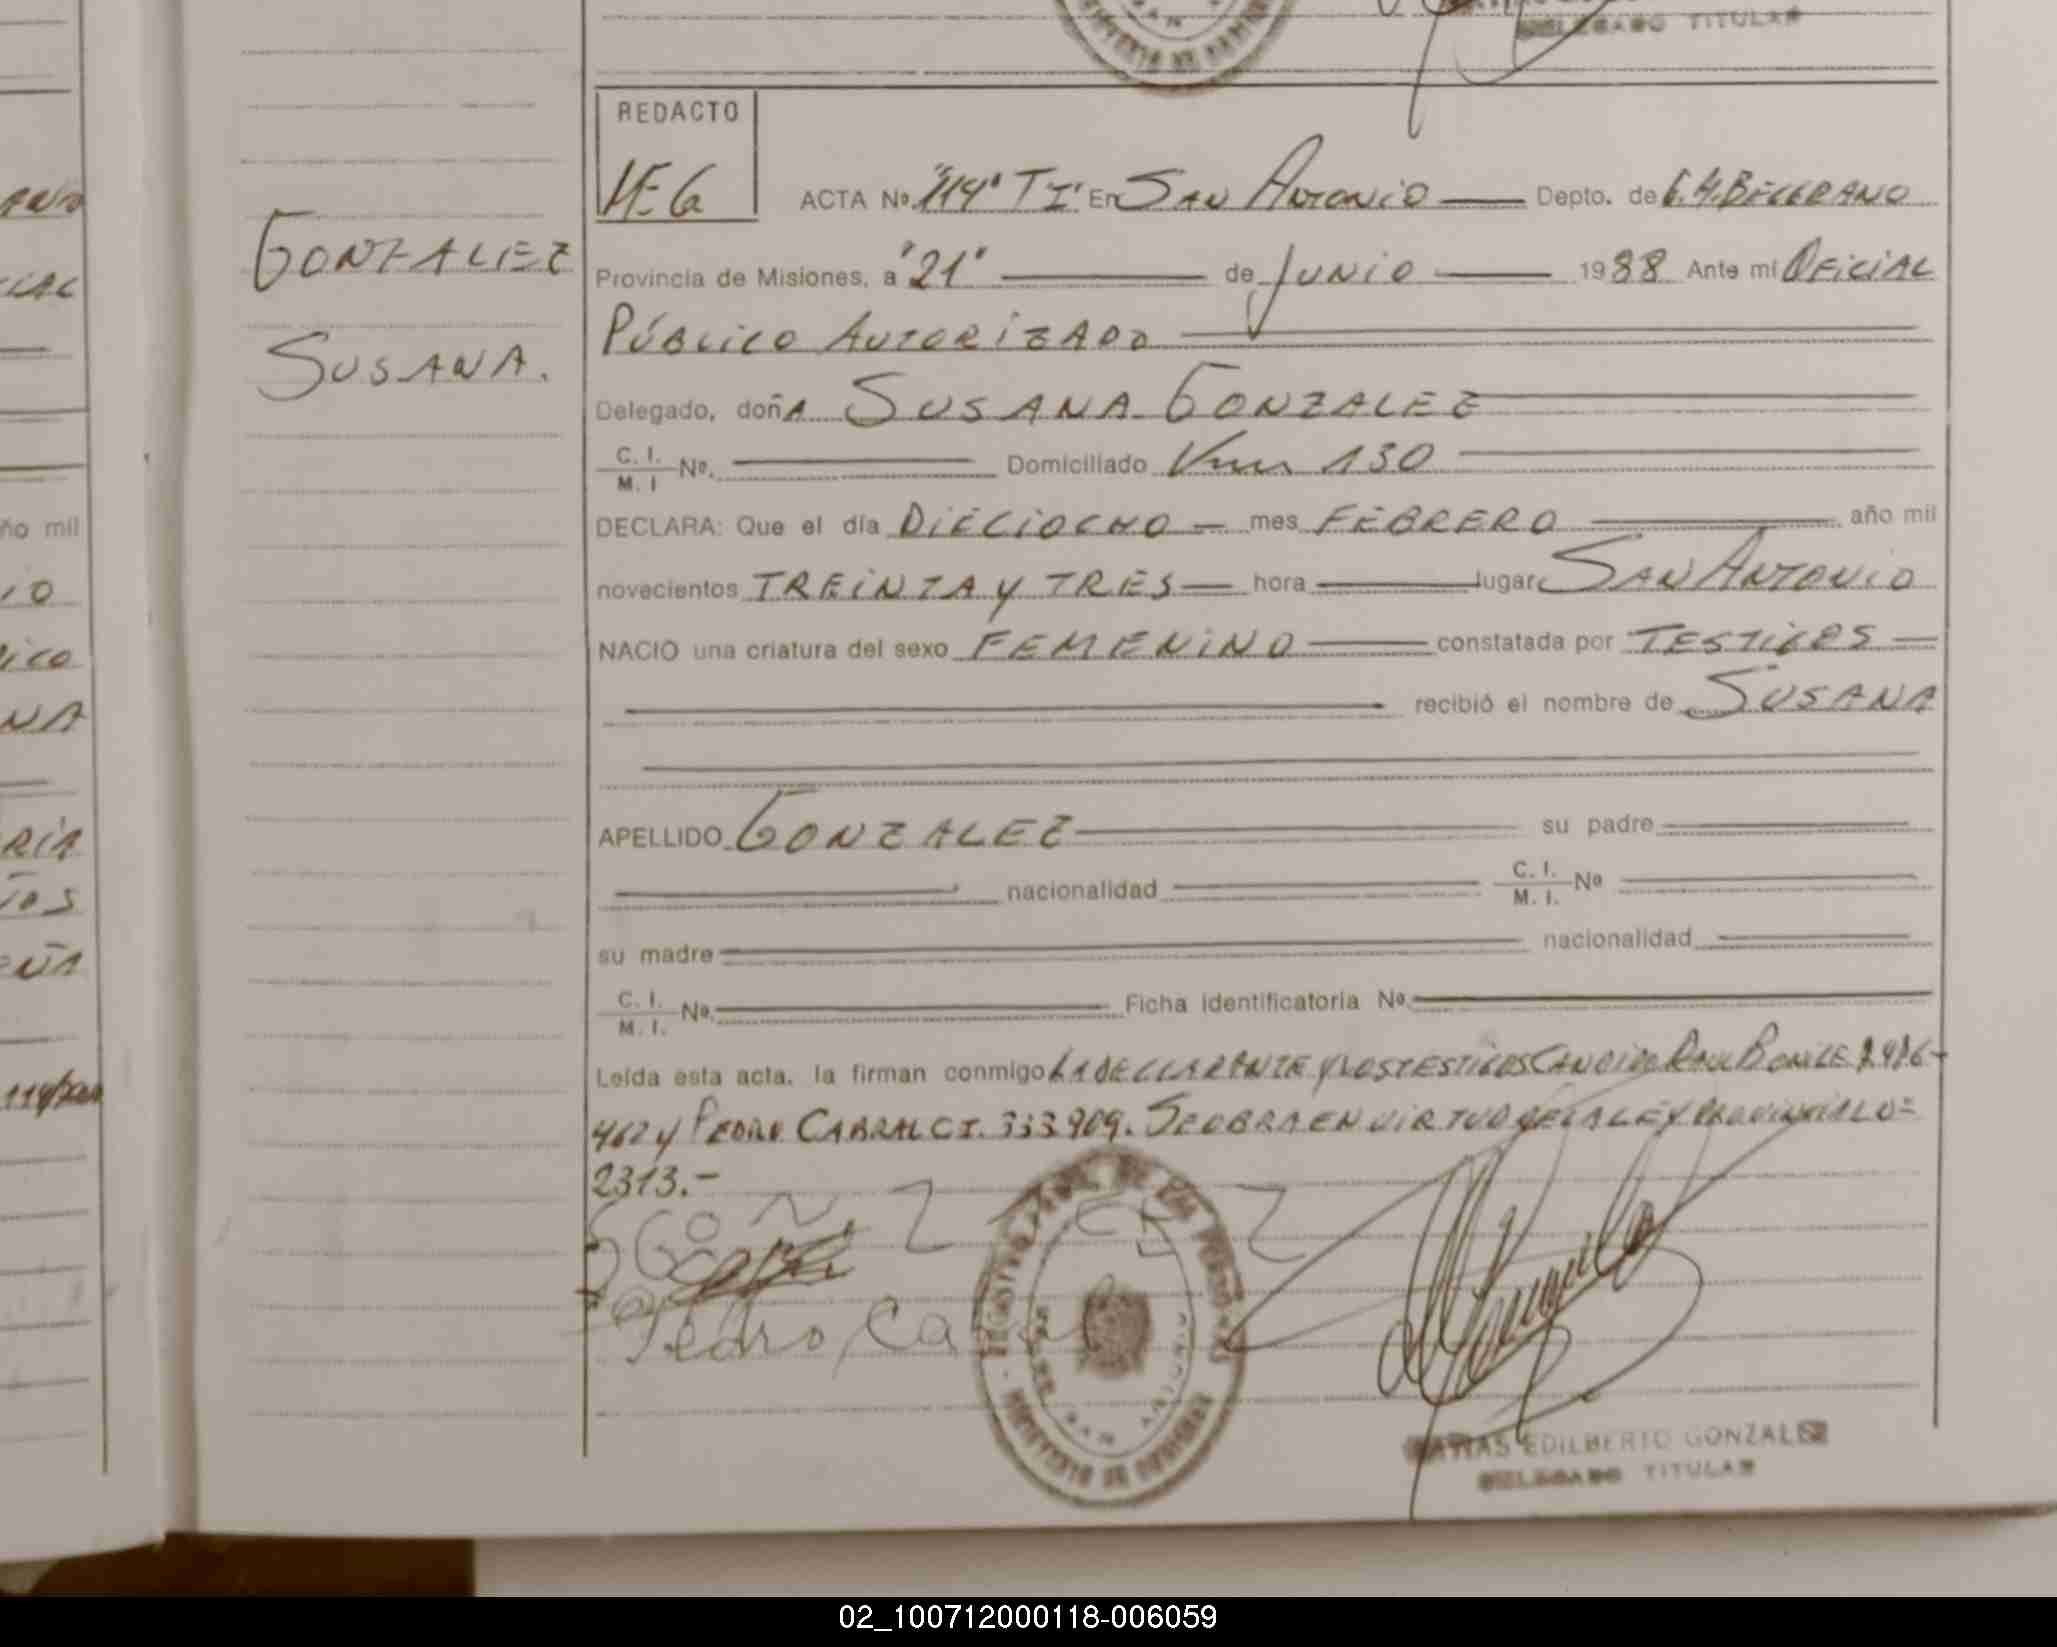 DELEGADO TITULAR
REDACTO
MEG
ACTA No. "114" TI' En SAN ANTONIO Depto. de G.M.BELGRANO
Provincia de Misiones, a "21" de JUNIO 1988 Ante mí OFICIAL
PÚBLICO AUTORIZADO
Delegado, doñA SUSANA GONZALEZ
C. I.
M. I Nº. Domiciliado Km 130
DECLARA: Que el día DIECIOCHO mes FEBRERO año mil
novecientos TREINTA Y TRES hora lugar SAN ANTONIO
NACIO una criatura del sexo FEMENINO constatada por TESTIGOS
recibió el nombre de SUSANA
APELLIDO GONZALEZ su padre
nacionalidad C. I.
M. I. Nº
su madre nacionalidad
C. I.
M. I. Nº. Ficha identificatoria Nº.
Leída esta acta, la firman conmigo LA DECLARANTE Y LOS TESTIGOS CANDIDO RAUL 
462 Y PEDRO CABRAL CI. 333.909. SE OBRA EN VIRTUD DE LA LEY PROVINCIAL Nº
2313.-
Pedro Cabral
SAN ANTONIO
MINISTERIO DE GOBIERNO
EDILBERTO GONZALEZ
DELEGADO TITULAR
GONZALEZ
SUSANA.
ño mil
02_100712000118-006059